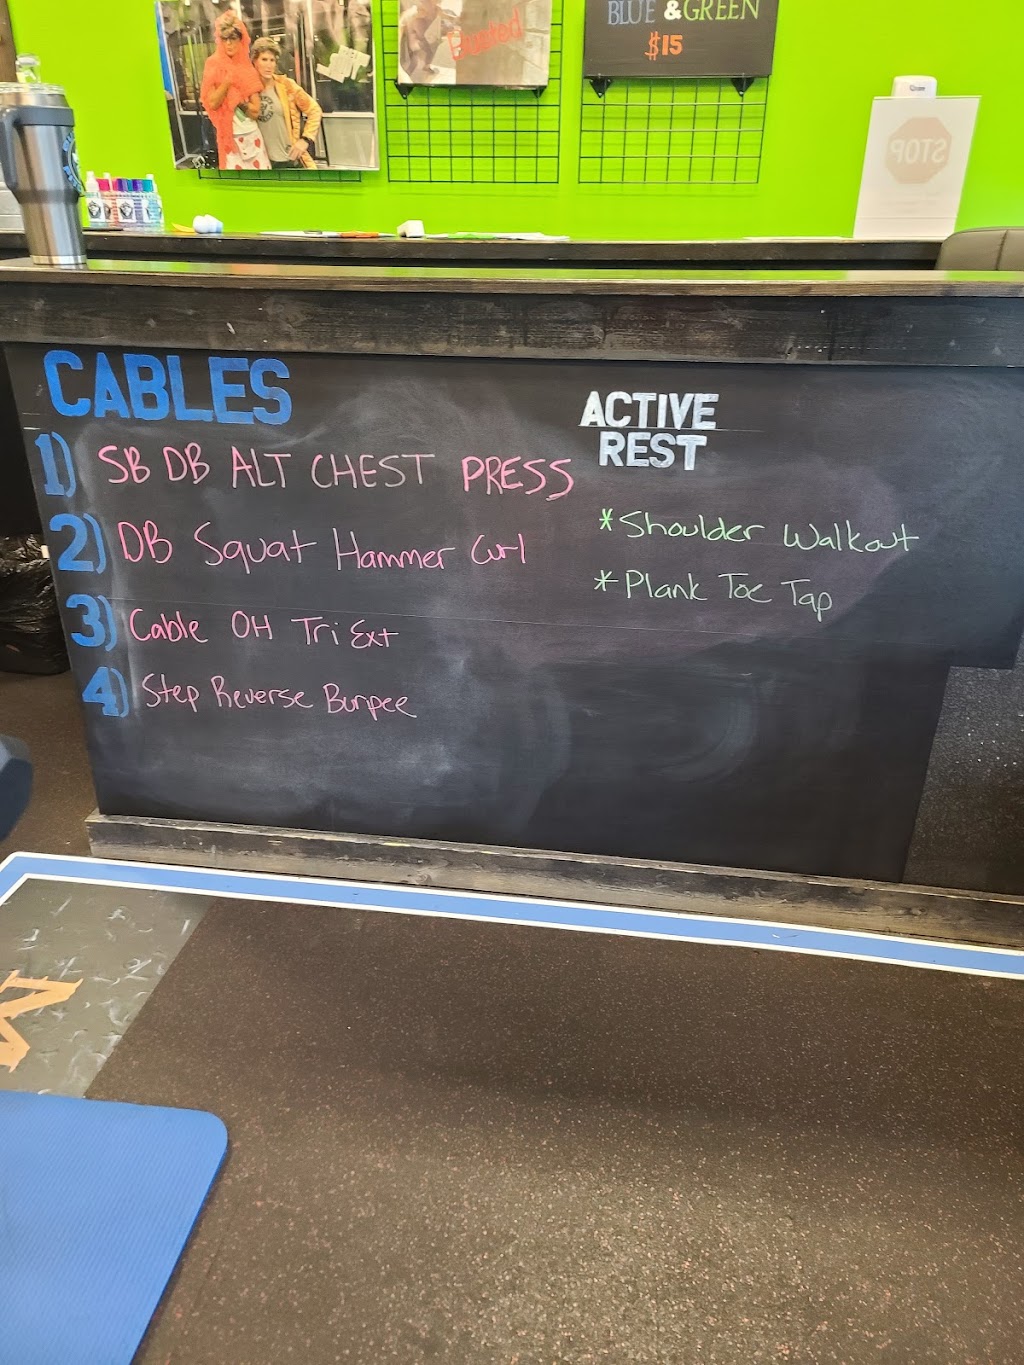 Busted
BLUE & GREEN
$15
STOP
CABLES
1) SB DB ALT CHEST PRESS
2) DB Squat Hammer Curl
3) Cable OH Tri Ext
4) Step Reverse Burpee
ACTIVE
REST
* Shoulder Walkout
* Plank Toe Tap